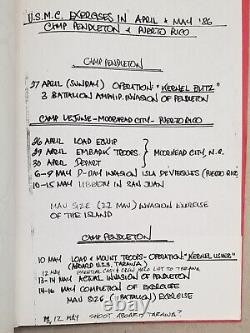 U.S.M.C. EXERCISES IN APRIL & MAY '86
CAMP PENDLETON & PUERTO RICO
CAMP PENDLETON
27 APRIL (SUNDAY) OPERATION: "KERNEL BLITZ"
3 BATTALION AMPHIB. INVASION OF PENDLETON
CAMP LEJEUNE - MOOREHEAD CITY - PUERTO RICO
26 APRIL LOAD EQUIP
29 APRIL EMBARK TROOPS MOOREHEAD CITY, N.C.
30 APRIL DEPART
6-9 MAY D-DAY INVASION ISLA DE VIEQUES (PUERTO RICO)
10-15 MAY LIBERTY IN SAN JUAN
MAU SIZE (22 MAN) INVASION EXERCISE
OF THE ISLAND
CAMP PENDLETON
10 MAY LOAD & MOUNT TROOPS - OPERATION "KERNEL USHER"
(ABOARD U.S.S. TARAWA)
12 MAY CREW TO THE TARAWA
13-14 MAY ACTUAL INVASION
14-16 MAY COMPLETION OF EXERCISE
MAU SIZE (1 BATTALION) EXERCISE
12 MAY SHOOT ABOARD TARAWA?